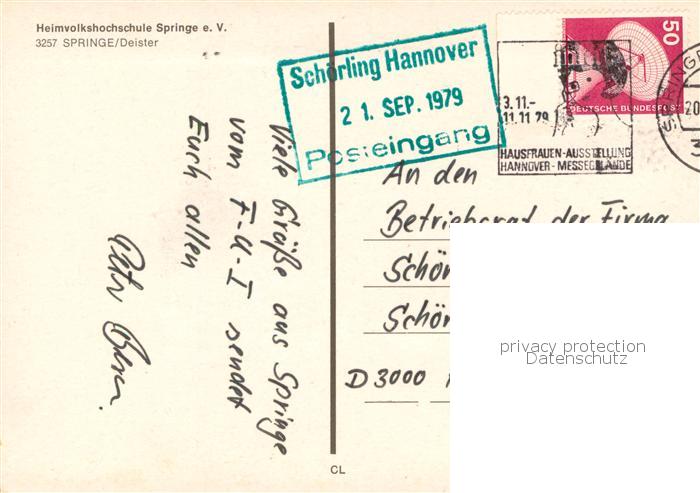 Heimvolkshochschule Springe e. V.
3257 SPRINGE/Deister
Schörling Hannover
21. SEP. 1979
Posteingang
50
DEUTSCHE BUNDESPOST
3.11.-
11.11.79
HAUSFRAUEN-AUSSTELLUNG
HANNOVER-MESSEGELÄNDE
SPRINGE
20
Viele Grüße aus Springe
vom F-U-I sendet
Euch allen
An den
Betriebsrat der Firma
Schör
Schör
D3000
privacy protection
Datenschutz
CL